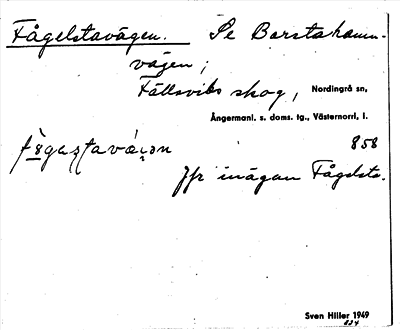 Fågelstavägen. Se Barstahamn-
vägen;
Fällsviks skog, Nordingrå sn,
Ångermanl. s. doms. tg., Västernorrl. l.
858
Jfr inägan Fågelsta.
Sven Hiller 1949